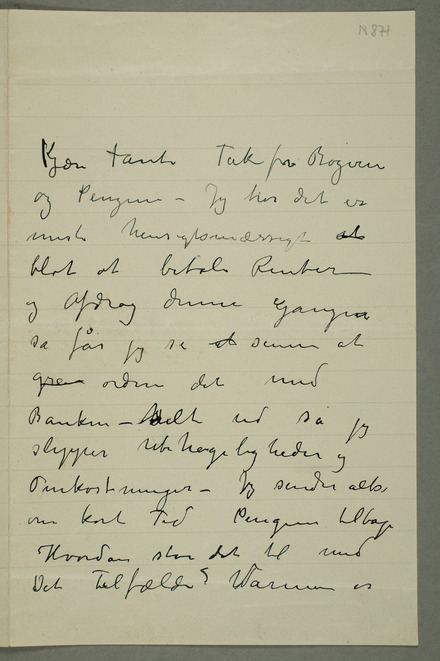 N 871
Kjære tante Tak for Bogerne
og Pengene – Jeg tror det er
mest hensigtsmæssigt at
blot at betale Renter
og Afdrag denne Gangen
så får jeg se at senere at
ordne det med
Banken – helt ud så jeg
slipper ubehageligheder og
Omkostninger – Jeg sender altså
om kort Tid Pengene tilbage
Hvordan står det til med
Det Tilfælde? Varmen er